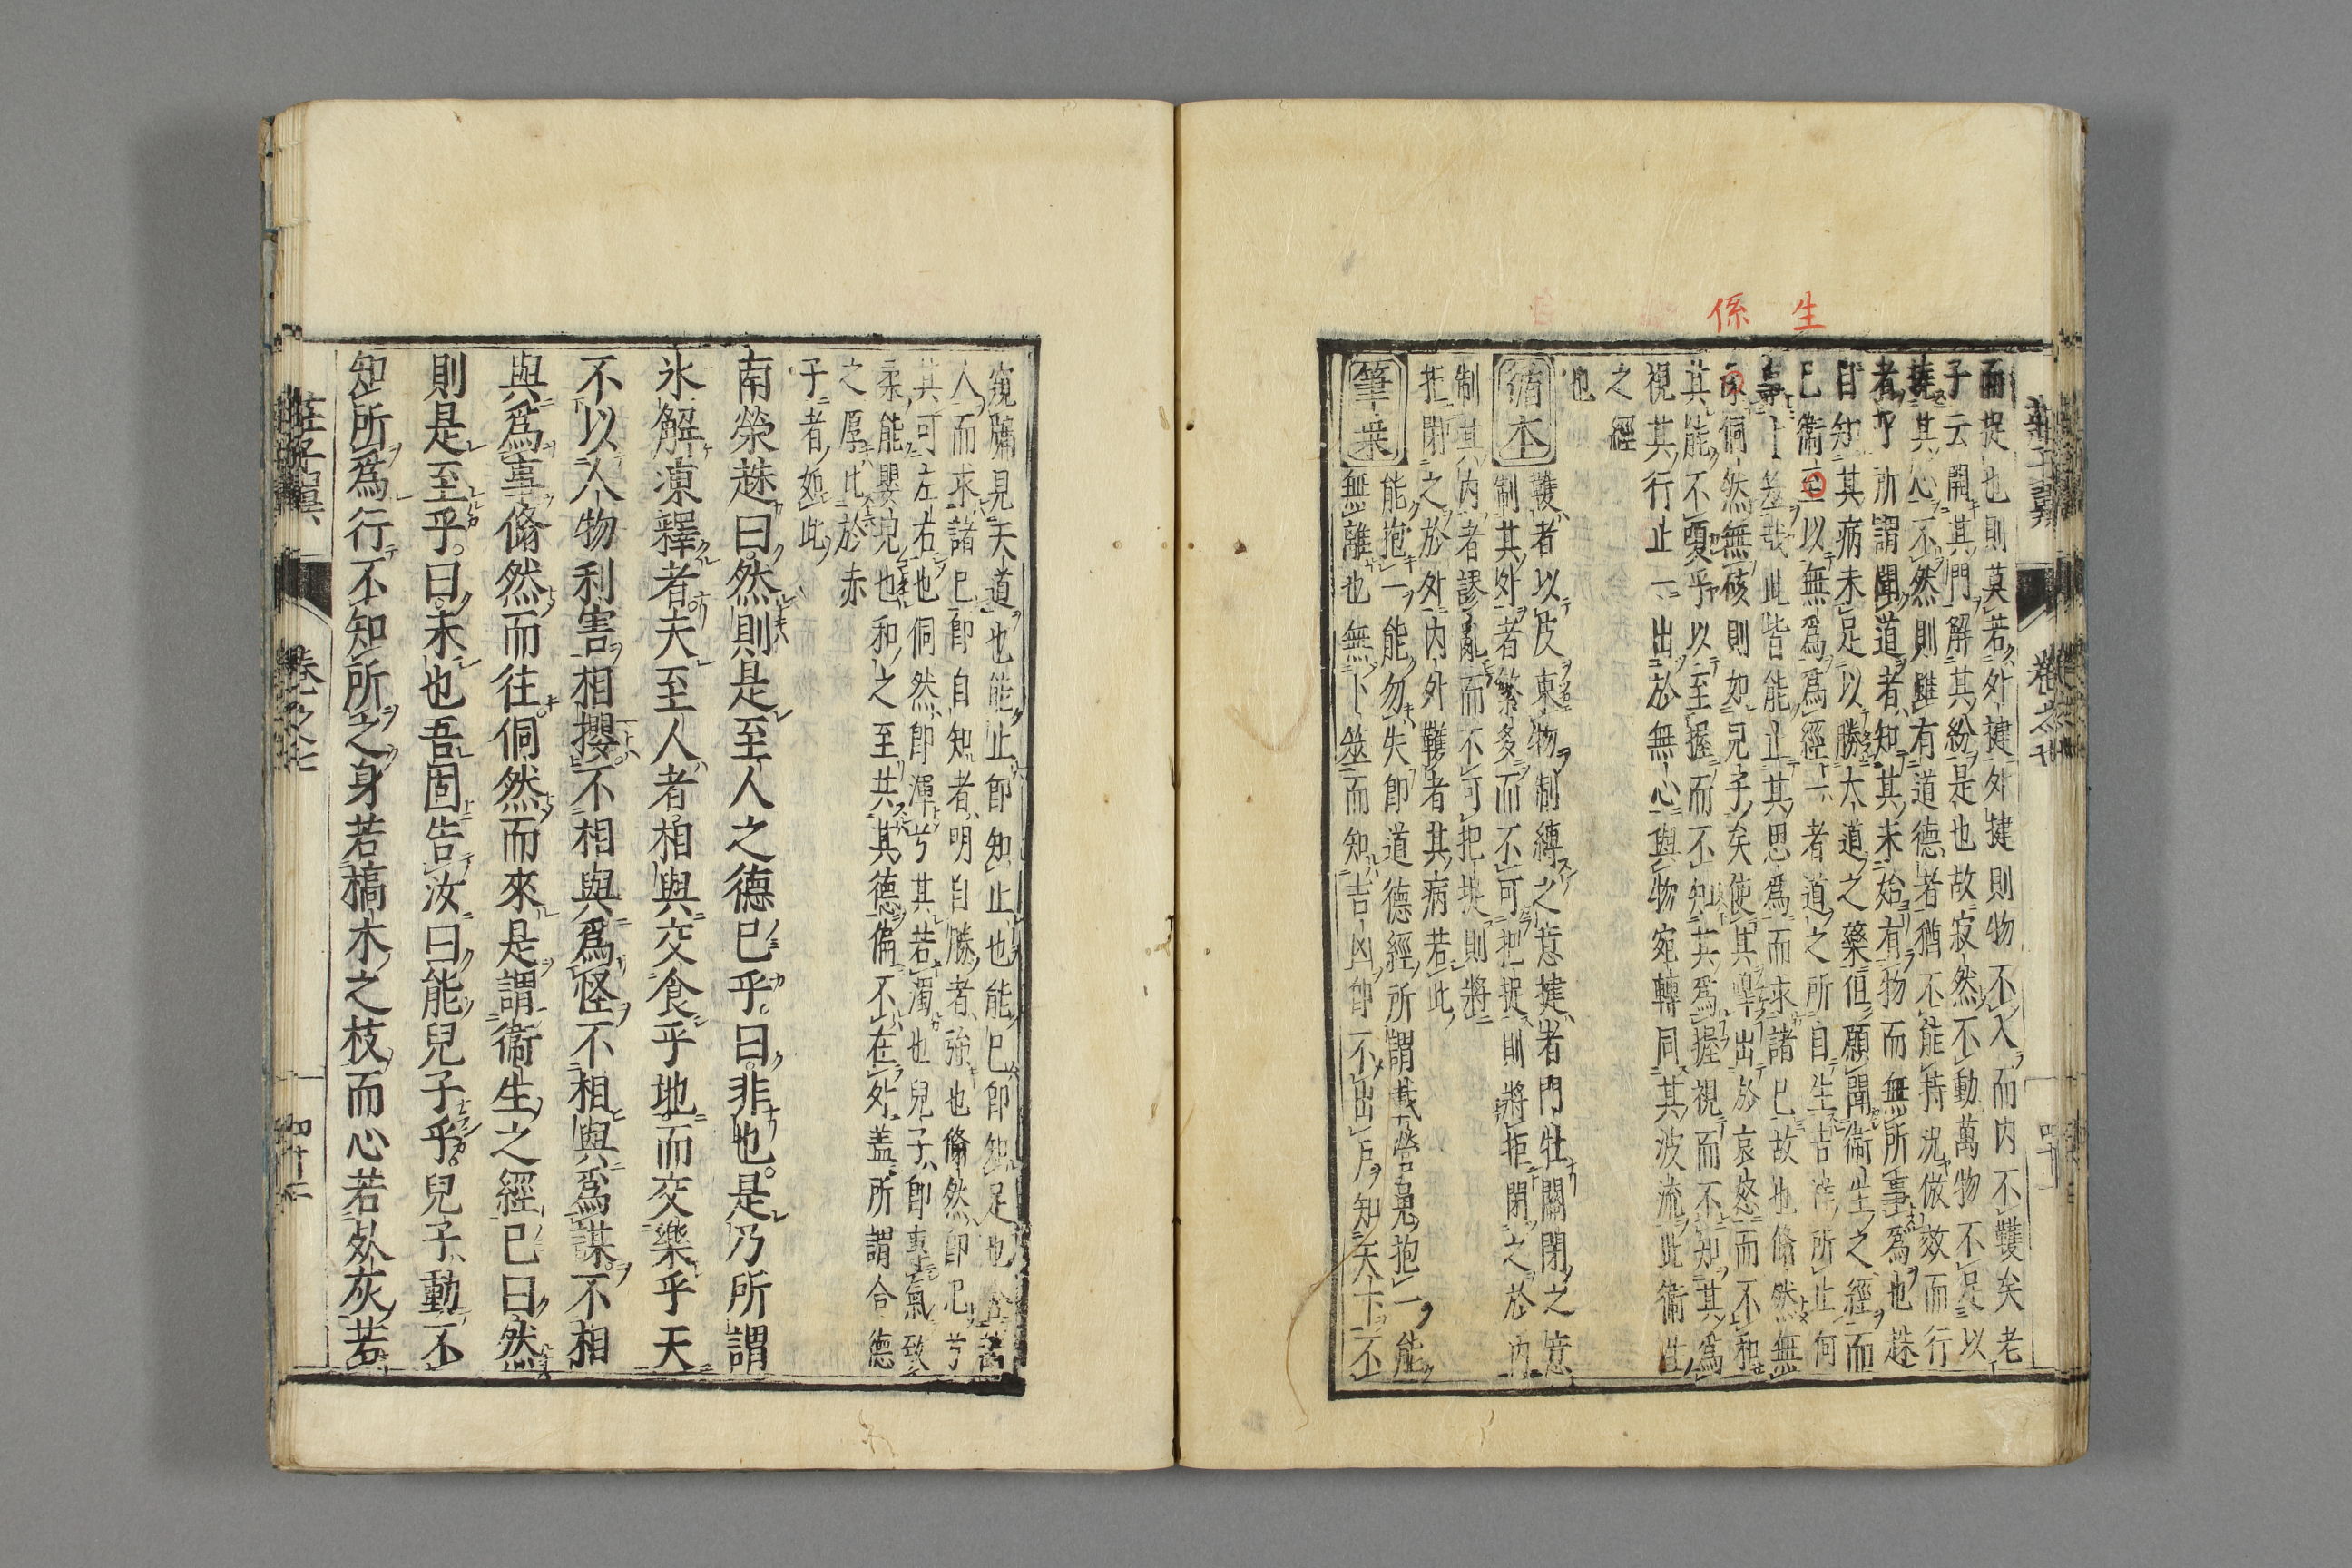 生
係
而捉也則莫若外揵外揵則物不入而内不韄矣老
子云開其門解其紛是也故寂然不動萬物不足以
揵其心不然則雖有道德者猶不能持況倣效而行
者乎所謂聞道者知其未始有物而無所事爲也趎
自知其病未足以勝大道之藥但願聞衞生之經而
已衞至以無爲爲經一者道之所自生吉祥所止何
卜筮哉此皆能止其思爲而求諸已故也翛然無
侗然無硋則如兒子矣使其嘷出於哀慾而不和
其能不嗄乎以至握而不知其爲握視而不知其爲
視其行止一出於無心與物宛轉同其波流此衞生
之經
也
循本
韄者以皮束物制縛之意揵者門牡關閉之意
制其外者繁多而不可把捉則將拒閉之於内
制其内者謬亂而不可把捉則將
拒閉之於外内外韄者其病若此
筆乗
能抱一能勿失即道德經所謂載營魄抱一能
無離也無卜筮而知吉凶即不出戸知天下不
莊子翼
卷之七
窺牖見天道也能止即知止也能已即知足也舍諸
人而求諸已即自知者明自勝者強也翛然即氾兮
其可左右也侗然即渾兮其若濁也兒子即專氣致
柔能嬰兒也和之至共其德偏不在外蓋所謂合德
之厚比於赤
子者如此
南榮趎曰然則是至人之德已乎曰非也是乃所謂
氷解凍釋者夫至人者相與交食乎地而交樂乎天
不以人物利害相攖不相與爲怪不相與爲謀不相
與爲事翛然而往侗然而來是謂衞生之經已曰然
則是至乎曰未也吾固告汝曰能兒子乎兒子動不
知所爲行不知所之身若槁木之枝而心若死灰若
莊子翼
卷之七
四十二